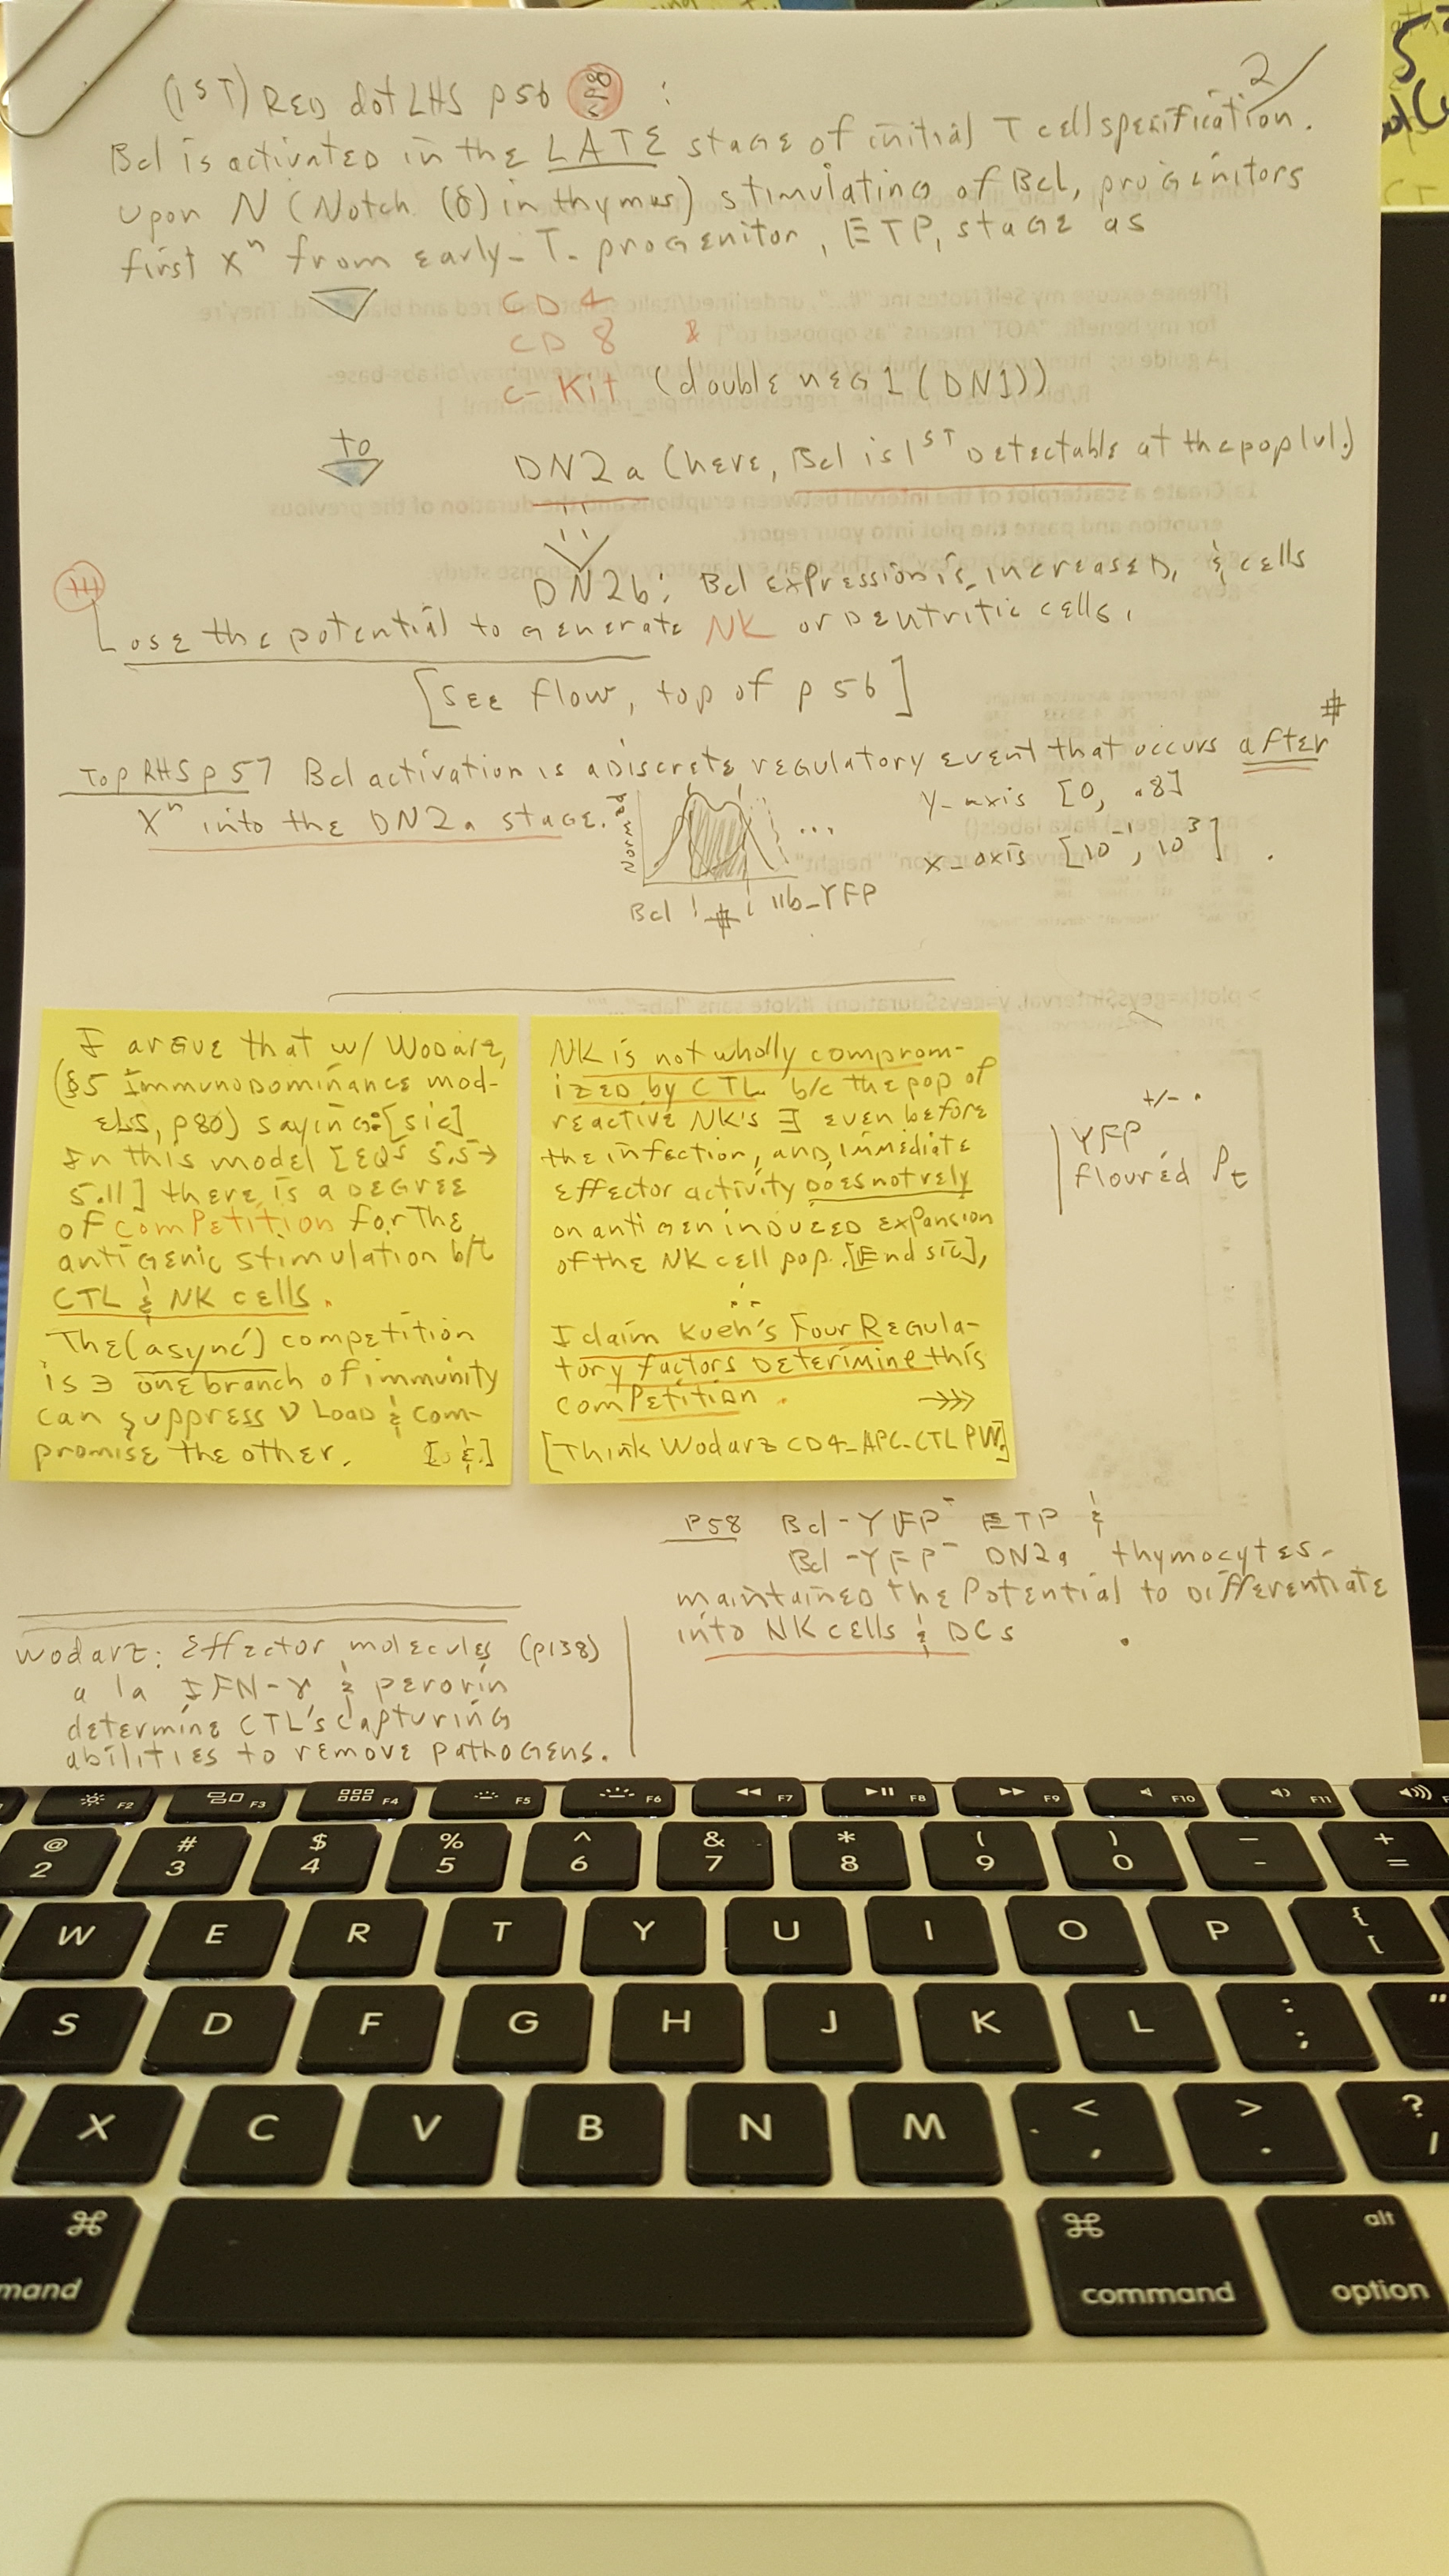 2
(1ST) RED dot LHS p56 :
Bcl is activated in the LATE stage of initial T cell spesification.
Upon N (Notch (δ) in thymus) stimulating of Bcl, progenitors
first Xⁿ from early-T-progenitor, ETP, stage as
CD4
CD8 &
c-Kit (double neg 1 (DN1))
to
DN2a (here, Bcl is 1ST Detectable at the pop lvl.)
DN2b: Bcl expression is increased, & cells
Lose the potential to generate NK or Deutritic cells.
[See flow, top of p 56]
#
Top RHS p57 Bcl activation is a Discrete regulatory event that occurs after
Xⁿ into the DN2a stage.
...
y-axis [0, .8]
x-axis [10⁻¹, 10³]
Bcl # 11b-YFP
I argue that w/ Wodarz,
(§5 Immunodominance mod-
els, p80) saying: [sic]
In this model [EQS 5.5→
5.11] there is a degree
of competition for the
antigenic stimulation b/t
CTL & NK cells.
The (async) competition
is ∋ one branch of immunity
can suppress V Load & com-
promise the other.
NK is not wholly comprom-
ized by CTL b/c the pop of
reactive NK's ∃ even before
the infection, and immediate
effector activity does not rely
on antigen induced expansion
of the NK cell pop. [End sic],
∴
I claim Kueh's Four Regula-
tory factors deterimine this
competition.
[Think Wodarz CD4-APC-CTL PW]
+/- .
YFP
flouréd Pt
P58 Bcl-YFP⁻ ETP &
Bcl-YFP⁻ DN2a thymocytes
maintained the Potential to Differentiate
into NK cells & DCs .
Wodarz: Effector molecules (p138)
a la IFN-γ & perorin
determine CTL's capturing
abilities to remove pathogens.
F2 F3 F4 F5 F6 F7 F8 F9 F10 F11
@ # $ % ^ & * ( ) _ +
2 3 4 5 6 7 8 9 0 - =
W E R T Y U I O P { [
S D F G H J K L : ; "
X C V B N M < , > . ? /
⌘ ⌘ alt
mand command option